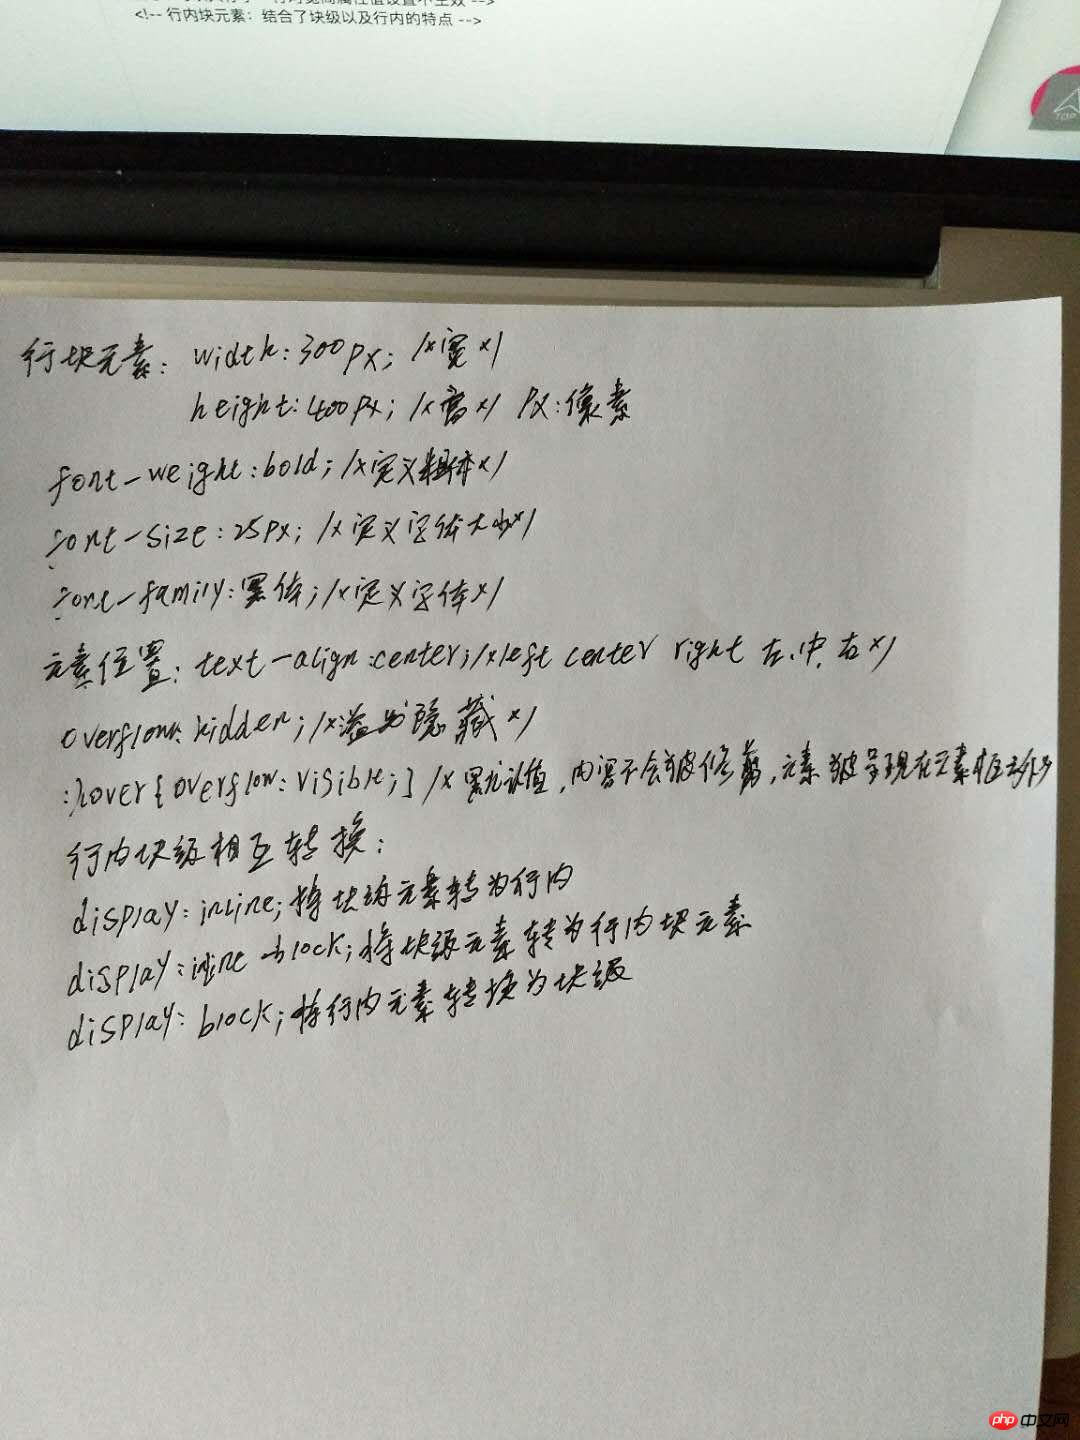 行内宽高属性值设置不生效 -->
<!-- 行内块元素：结合了块级以及行内的特点 -->
TOP
行块元素：width:300px; /*宽*/
height:400px; /*高*/ px:像素
font-weight:bold; /*定义粗体*/
font-size:25px; /*定义字体大小*/
font-family:黑体; /*定义字体*/
元素位置：text-align:center; /*left center right 左、中、右*/
overflow:hidden; /*溢出隐藏*/
:hover{overflow:visible;} /*默认值，内容不会被修剪，元素被呈现在元素框之外
行内块级相互转换：
display:inline;将块级元素转为行内
display:inline-block;将块级元素转为行内块元素
display:block;将行内元素转换为块级
php 中文网